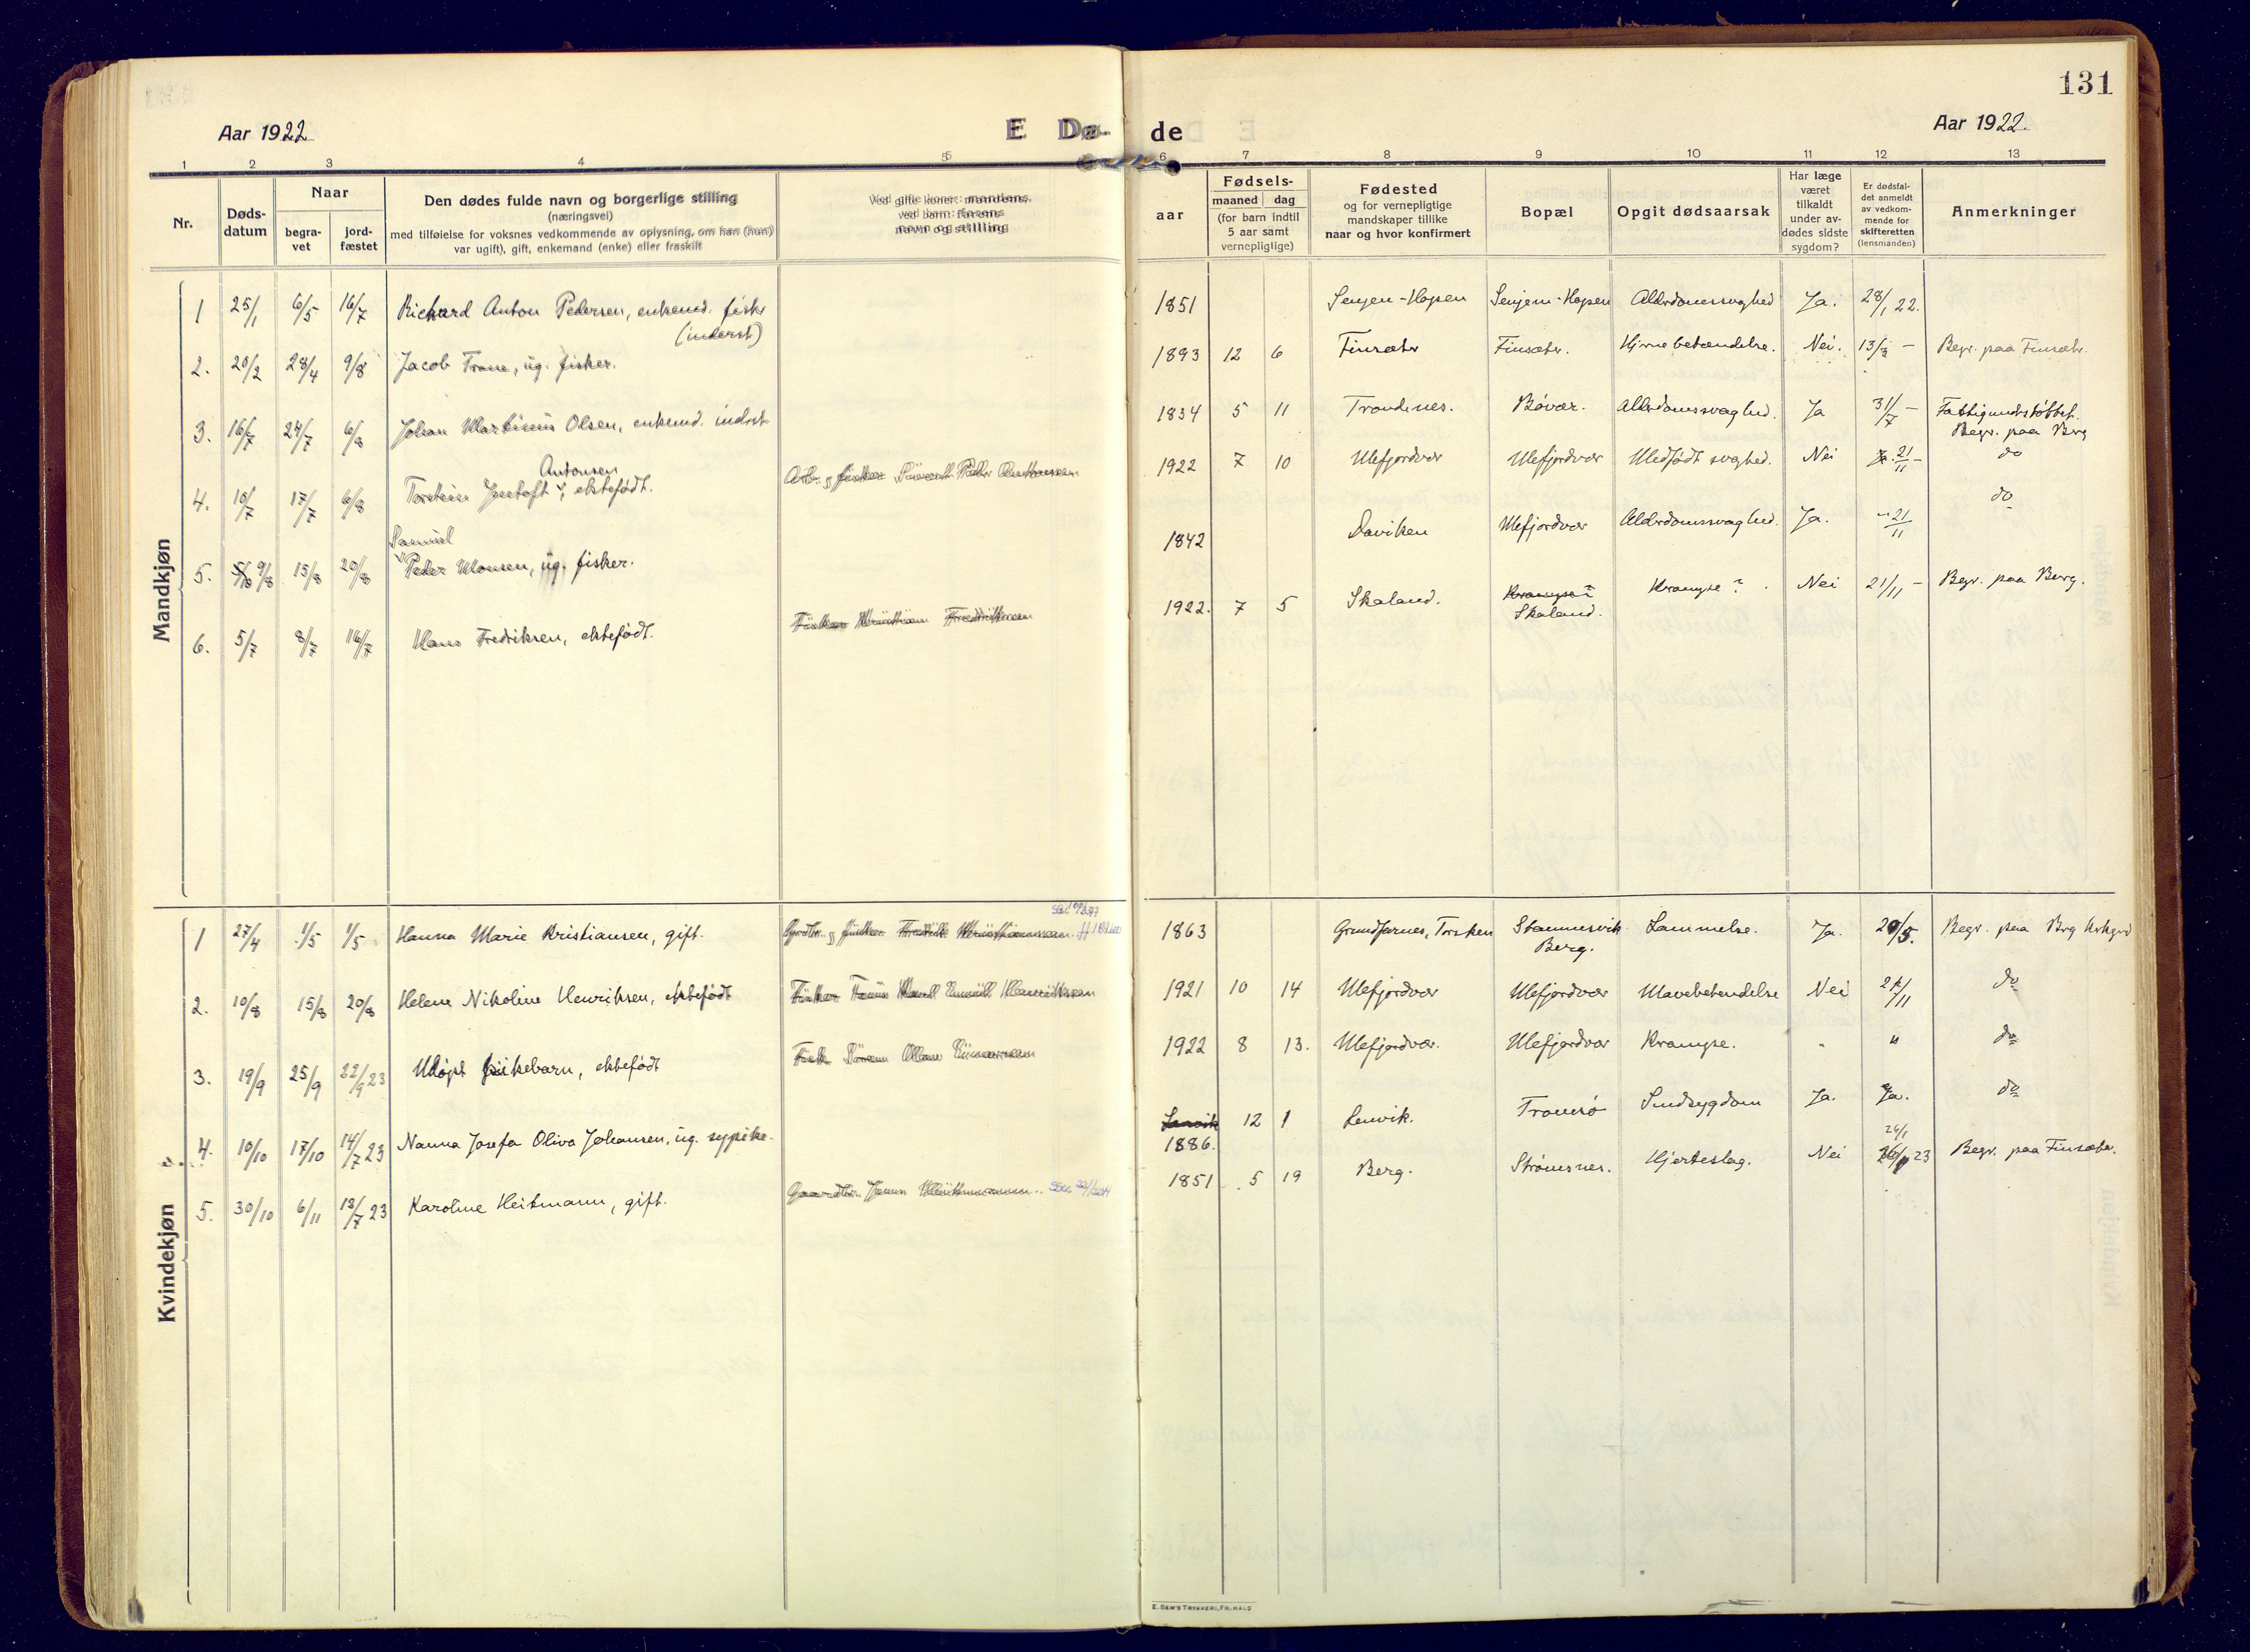 131
Aar 1922
E Dø-
de
Aar 1922.
1 2 3 4 5 6 7 8 9 10 11 12 13
Nr.
Døds-
datum
Naar
begra-
vet
jord-
fæstet
Den dødes fulde navn og borgerlige stilling
(næringsvei)
med tilføielse for voksnes vedkommende av oplysning, om han (hun)
var ugift), gift, enkemand (enke) eller fraskilt
Ved gifte koner: mandens,
ved barn: farens
navn og stilling
aar
Fødsels-
maaned dag
(for barn indtil
5 aar samt
vernepligtige)
Fødested
og for vernepligtige
mandskaper tillike
naar og hvor konfirmert
Bopæl
Opgit dødsaarsak
Har læge
været
tilkaldt
under av-
dødes sidste
sygdom?
Er dødsfal-
det anmeldt
av vedkom-
mende for
skifteretten
(lensmanden)
Anmerkninger
Mandkjøn
1 25/1 6/5 16/7 Richard Anton Pedersen, enkemd. fisker 1851 Senjen-Hopen Senjen-Hopen Alderdomssvaghed Ja. 28/1 22.
(inderst)
2. 20/2 28/4 9/8 Jacob Trane, ug. fisker. 1893 12 6 Finsæter Finsæter. Hjernebetændelse. Nei. 13/3 - Begr. paa Finsæter.
3. 16/7 24/7 6/8 Johan Martinus Olsen, enkemd. inderst 1834 5 11 Trondenes. Bövær. Alderdomssvaghed. Ja 31/7 - Fattigunderstöttet.
Begr. paa Berg
Antonsen
4. 10/7 17/7 6/8 Torstein Jentoft, ektefödt. 1922 7 10 Mefjordvær Mefjordvær Medfödt svaghed. Nei 21/11 - do
Samuel
5. 9/8 15/8 20/8 Peder Monsen, ug. fisker. 1842 Daviken Mefjordvær Alderdomssvaghed. Ja. " 21/11 do
6. 5/7 8/7 16/7 Hans Fredriksen, ektefödt. Fisker Kristian Fredriksen 1922. 7 5 Skaland. Krampe? Krampe? Nei 21/11 - Begr. paa Berg.
Skaland.
Kvindekjøn
1 27/4 1/5 1/5 Hanna Marie Kristiansen, gift. Grdbr. g fisker Fredrik Kristiansen. 1863 Grundfarnes, Torsken Stammesvik Lammelse. Ja. 20/5. Begr. paa Brg Krkgrd
Berg.
2. 10/8 15/8 20/8 Helene Nikoline Henriksen, ektefödt Fisker Hans Karl Emil Henriksen 1921 10 14 Mefjordvær Mefjordvær Mavebetendelse Nei 21/11 do
3. 19/9 25/9 22/9 23 Udöpt pikebarn, ektefödt Fisk. Sören Olan Einarsen 1922 8 13. Mefjordvær. Mefjordvær Krampe. " " do
4. 10/10 17/10 14/7 23 Nanna Josefa Oliva Johansen, ug. sypike. Lenvik 12 1 Lenvik. Tromsö Sindsygdom Ja. Ja. do
1886.
5. 30/10 6/11 13/7 23 Karoline Heitmann, gift. 1851 5 19 Berg. Strömsnes. Hjerteslag. Nei 24/1 23 Begr. paa Finsæter.